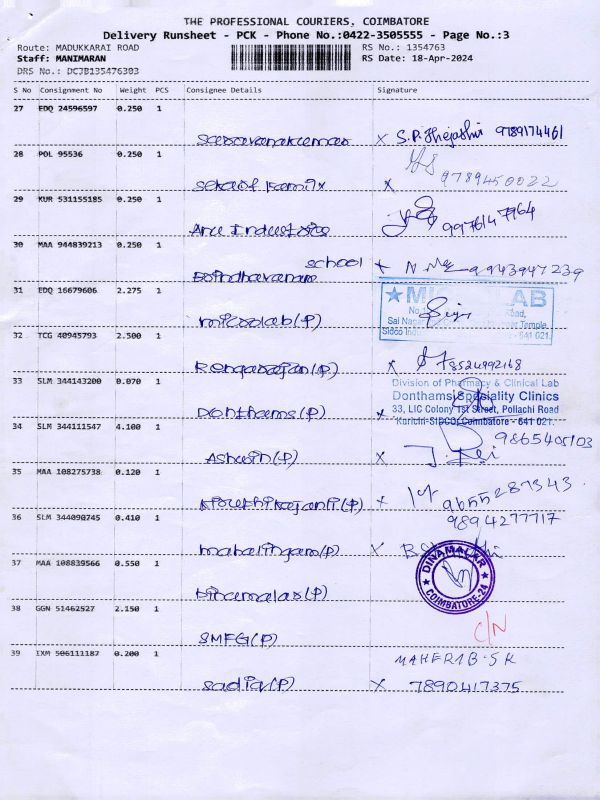 THE PROFESSIONAL COURIERS, COIMBATORE
Delivery Runsheet - PCK - Phone No.:0422-3505555 - Page No.:3
Route: MADUKKARAI ROAD RS No.: 1354763
Staff: MANIMARAN RS Date: 18-Apr-2024
DRS No.: DCJB135476303
S No Consignment No Weight PCS Consignee Details Signature
27 EDQ 24596597 0.250 1
Saravanakumar x S.P. Thejashri 9789174461
28 POL 95536 0.250 1
x 9789450022
29 KUR 531155185 0.250 1
Anu Industries 9976147964
30 MAA 944839213 0.250 1
school
Brindhavanam 9943947239
31 EDQ 16679606 2.275 1
microlab(P)
LAB
Road,
Sai Nagar Temple,
Sidco 641 021.
32 TCG 40945793 2.500 1
Rengarajan(P) x 8524992168
33 SLM 344143200 0.070 1
Division of Pharmacy & Clinical Lab
Donthams Speciality Clinics
33, LIC Colony 1st Street, Pollachi Road
Kurichi-SIDCO, Coimbatore - 641 021.
Donthams(P) x
34 SLM 344111547 4.100 1
9865405103
Ashwin(P) x
35 MAA 108275738 0.120 1
Kiruthikajanli(P) x 9655287343
36 SLM 344090745 0.410 1
9894277717
mahalingam(P) x
37 MAA 108839566 0.550 1
DINAMALAR
COIMBATORE-24
Dinamalar(P)
38 GGN 51462527 2.150 1
C/N
SMFG(P)
39 IXM 506111187 0.200 1
MAHERIB.SK
sadiq(P) x 7890417375